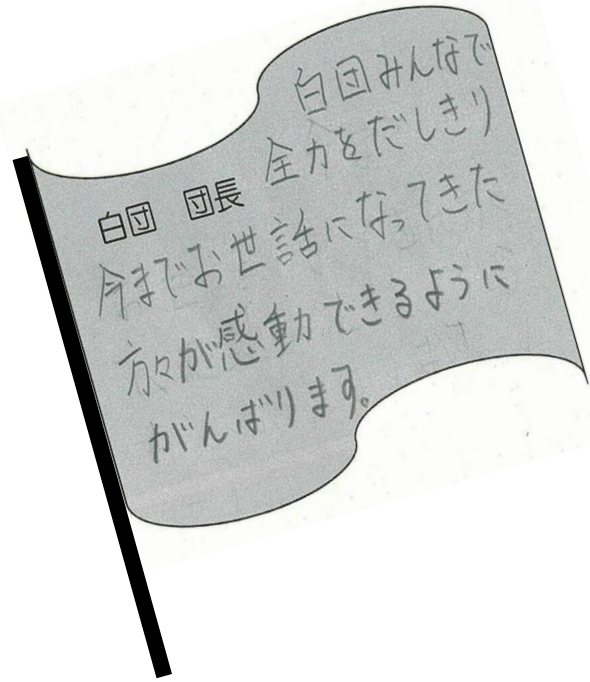 白団 団長
白団みんなで
全力をだしきり
今までお世話になってきた
方々が感動できるように
がんばります。